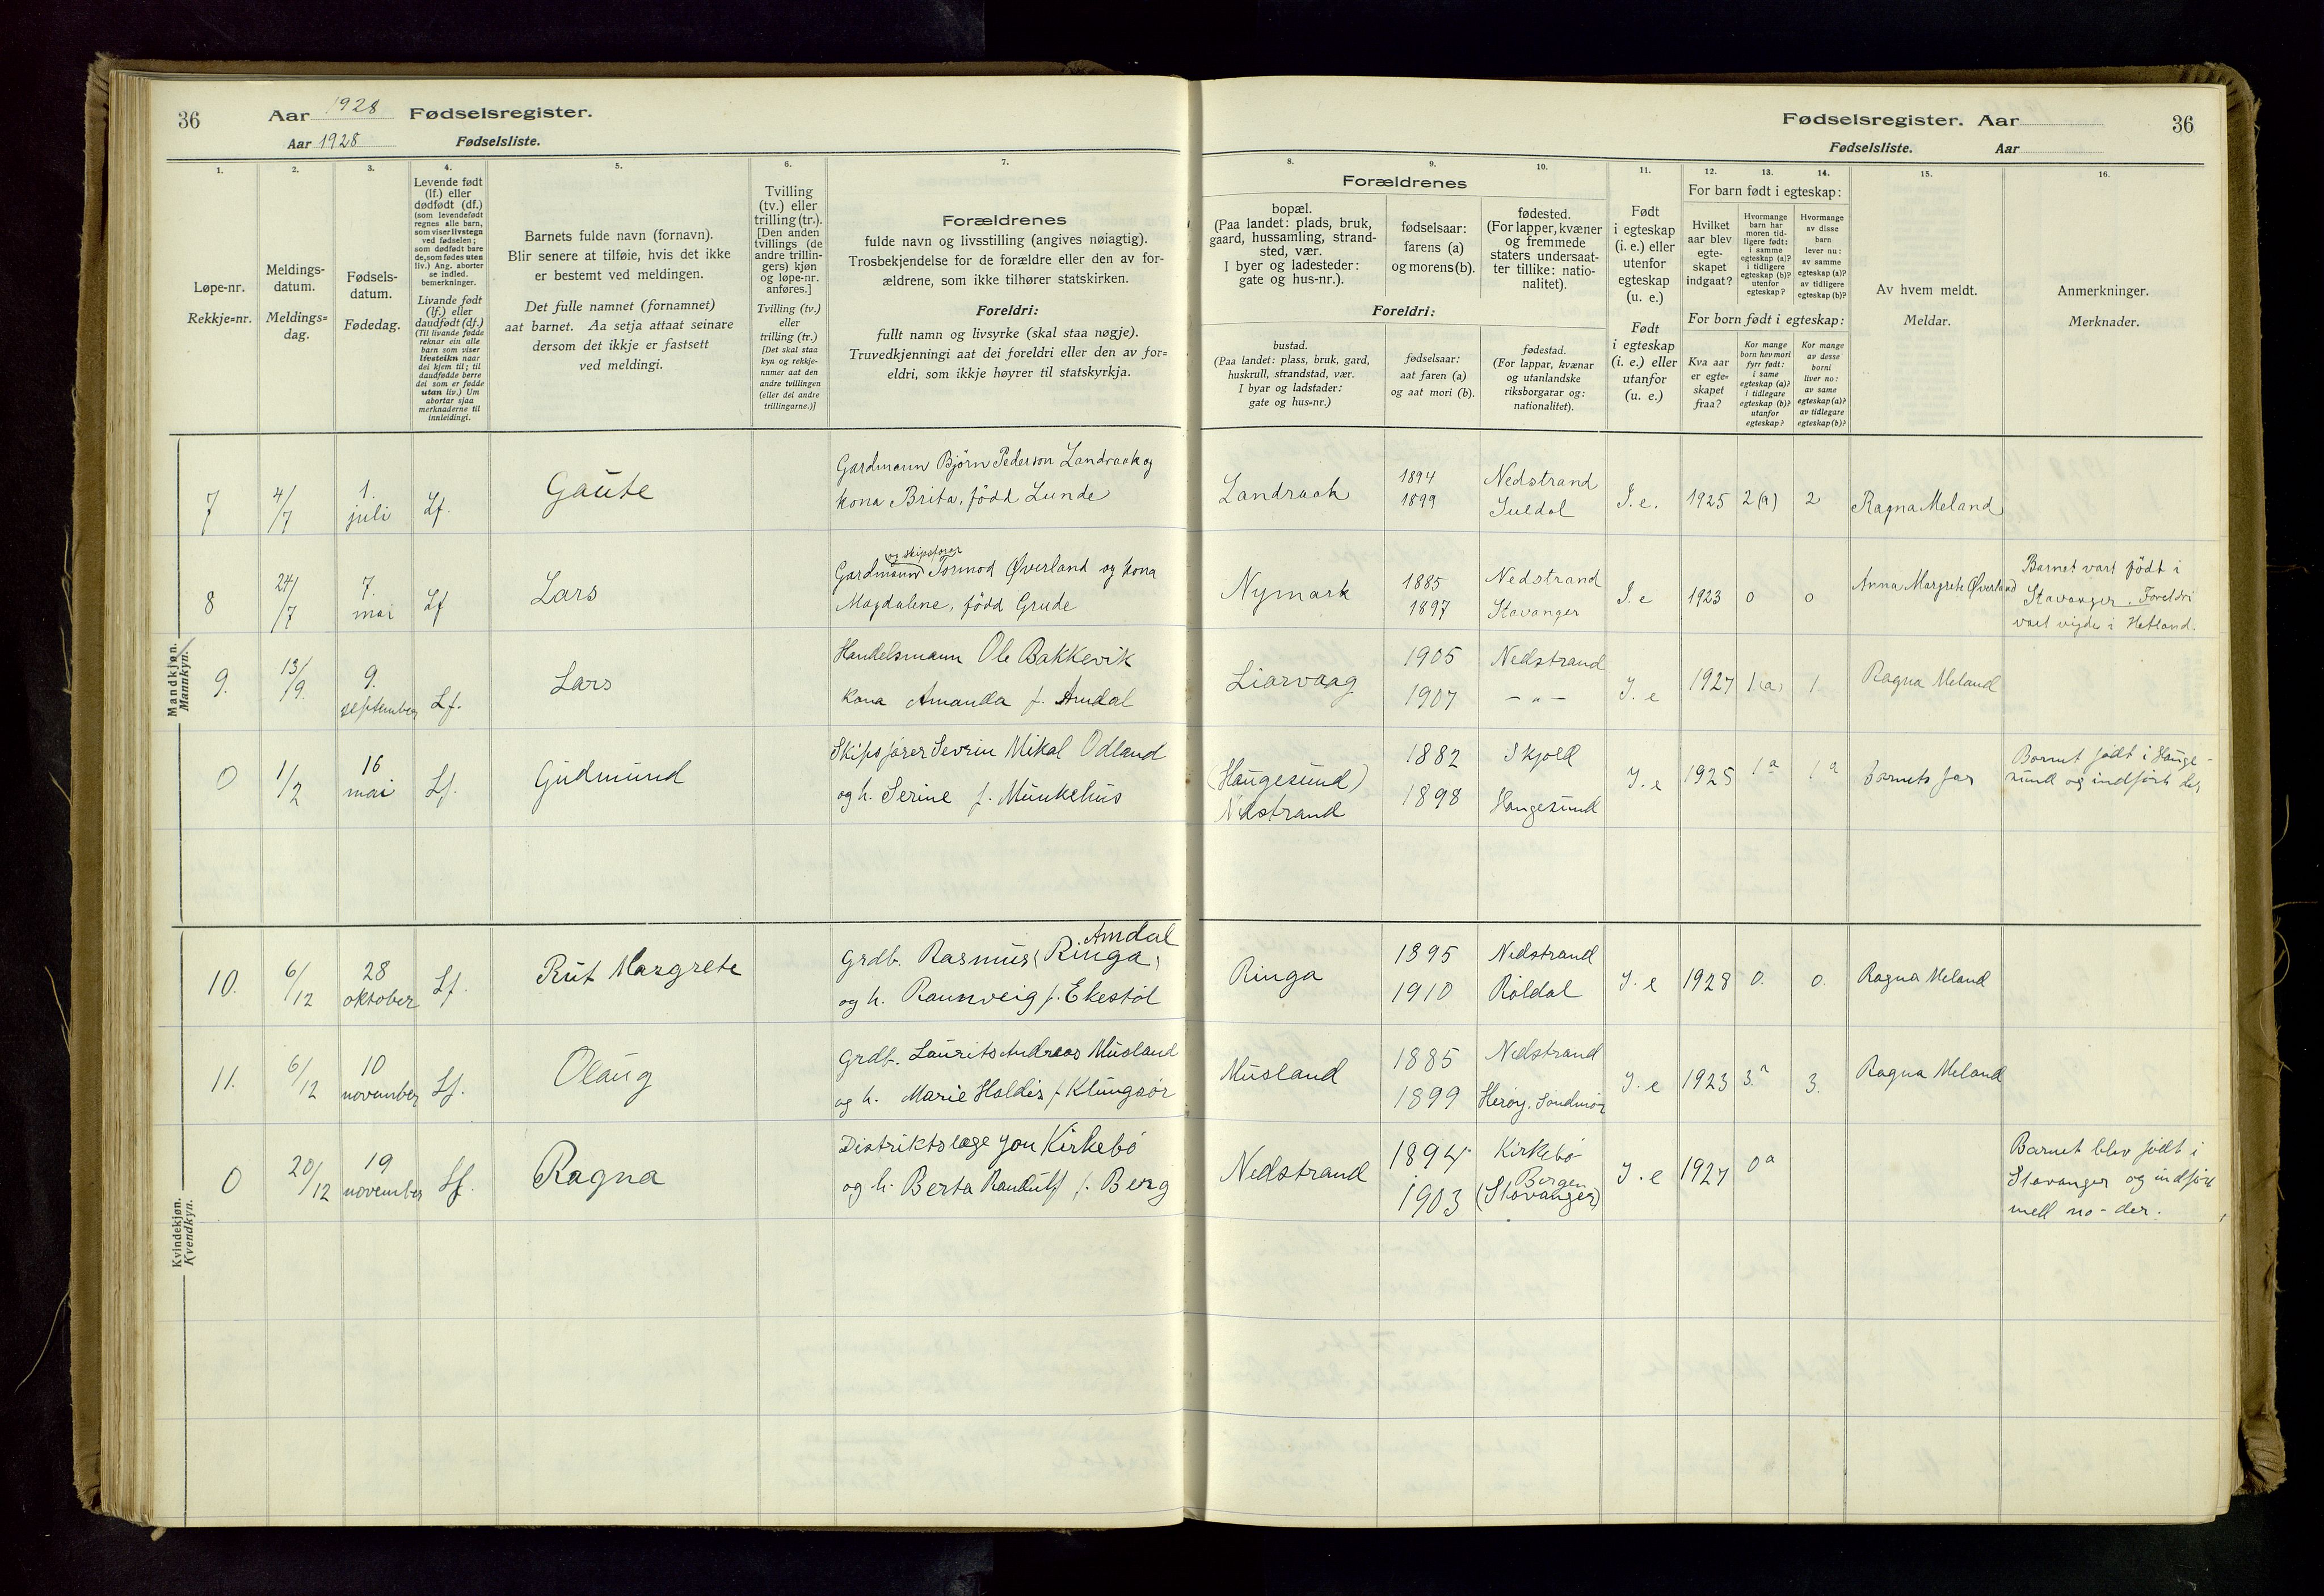 36
Aar 1928 Fødselsregister.
Aar 1928 Fødselsliste.
Fødselsregister. Aar
36
Fødselsliste. Aar
1.
Løpe-nr.
Rekkje=nr.
2.
Meldings-
datum.
Meldings=
dag.
3.
Fødsels-
datum.
Fødedag.
4.
Levende født
(lf.) eller
dødfødt (df.)
(som levendefødt
regnes alle barn,
som viser livstegn
ved fødselen;
som dødfødt bare
de, som fødes uten
liv.) Ang. aborter
se indled.
bemerkninger.
Livande født
(lf.) eller
daudfødt (df.)
(Til livande fødde
reknar ein alle
barn som viser
livsteikn naar
dei kjem til; til
daudfødde berre
dei som er fødde
utan liv.) Um
abortar sjaa
merknaderne til
innleidingi.
5.
Barnets fulde navn (fornavn).
Blir senere at tilføie, hvis det ikke
er bestemt ved meldingen.
Det fulle namnet (fornamnet)
aat barnet. Aa setja attaat seinare
dersom det ikkje er fastsett
ved meldingi.
6.
Tvilling
(tv.) eller
trilling (tr.).
[Den anden
tvillings (de
andre trillin-
gers) kjøn
og løpe-nr.
anføres.]
Tvilling (tv.)
eller
trilling (tr.)
[Det skal staa
kyn og rekkje-
numer aat den
andre tvillingen
(eller dei andre
trillingarne.)]
7.
Forældrenes
fulde navn og livsstilling (angives nøiagtig).
Trosbekjendelse for de forældre eller den av for-
ældrene, som ikke tilhører statskirken.
Foreldri:
fullt namn og livsyrke (skal staa nøgje).
Truvedkjenningi aat dei foreldri eller den av for=
eldri, som ikkje høyrer til statskyrkja.
Forældrenes
8.
bopæl.
(Paa landet: plads, bruk,
gaard, hussamling, strand-
sted, vær.
I byer og ladesteder:
gate og hus-nr.).
9.
fødselsaar:
farens (a)
og morens (b).
10.
fødested.
(For lapper, kvæner
og fremmede
staters undersaat-
ter tillike: natio-
nalitet).
Foreldri:
bustad.
(Paa landet: plass, bruk, gard,
huskrull, strandstad, vær.
I byar og ladstader:
gate og hus=nr.)
fødselsaar:
aat faren (a)
og aat mori (b).
fødestad.
(For lappar, kvænar
og utanlandske
riksborgarar og:
nationalitet).
11.
Født
i egteskap
(i. e.) eller
utenfor
egteskap
(u. e.)
Født
i egteskap
(i. e.) eller
utanfor
(u. e.)
12.
13.
14.
For barn født i egteskap:
Hvilket
aar blev
egte-
skapet
indgaat?
Hvormange
barn har
moren tid-
ligere født:
i samme
egteskap (a)?
i tidligere
egteskap (b)?
utenfor
egteskap?
Hvormange
av disse
barn
lever nu:
av samme
egteskap (a)?
av tidligere
egteskap (b)?
For born født i egteskap:
Kva aar
er egte=
skapet
fraa?
Kor mange
born hev mori
fyrr født:
i same
egteskap (a)?
i tidlegare
egteskap (b)?
utanfor
egteskap?
Kor mange
av desse
borni
liver no:
av same
egteskap (a)?
av tidlegare
egteskap (b)?
15.
Av hvem meldt.
Meldar.
16.
Anmerkninger.
Merknader.
Mandkjøn.
Mannkyn.
7 4/7 1. juli Lf. Gaute Gardmann Bjørn Pederson Landraak og
kona Brita, född Lunde
Landraak 1894 1899 Nedstrand Suldal I. e. 1925 2(a) 2 Ragna Meland
8 24/7 7. mai Lf Lars
og skipsförer
Gardmann Tormod Øverland og kona
Magdalene, född Grude
Nymark 1885 1897 Nedstrand Stavanger I. e 1923 0 0 Anna Margrete Øverland
Barnet vart födt i
Stavanger. Foreldri
vart vigde i Hetland.
9. 13/9. 9. september Lf. Lars Handelsmann Ole Bakkevik
kona Amanda f. Amdal
Liarvaag 1905 1907 Nedstrand — " — I. e 1927 1(a) 1 Ragna Meland
0 1/2 16 mai Lf. Gudmund Skipsförer Sevrin Mikal Odland
og h. Serine f. Munkehus
(Haugesund)
Nedstrand
1882 1898 Skjold Haugesund I. e 1925 1a 1a Barnets far
Barnet födt i Hauge-
sund og indfört der
10. 6/12 28 oktober Lf. Rut Margrete
Amdal
Grdb. Rasmus (Ringa)
og h. Raunveig f. Ekestöl
Ringa 1895 1910 Nedstrand Röldal I. e 1928 0. 0. Ragna Meland
11. 6/12 10 november Lf. Olaug Grdb. Laurits Andreas Musland
og h. Marie Haldis f. Klungsör
Musland 1885 1899 Nedstrand Heröy, Söndmör I. e 1923 3.a 3. Ragna Meland
Kvindekjøn.
Kvendkyn.
0 20/12 19 november Lf. Ragna Distriktslæge Jon Kirkebö
og h. Berta Randulff f. Berg
Nedstrand 1894 1903 Kirkebö
Bergen
(Stavanger)
I. e 1927 0a
Barnet blev födt i
Stavanger og indfört